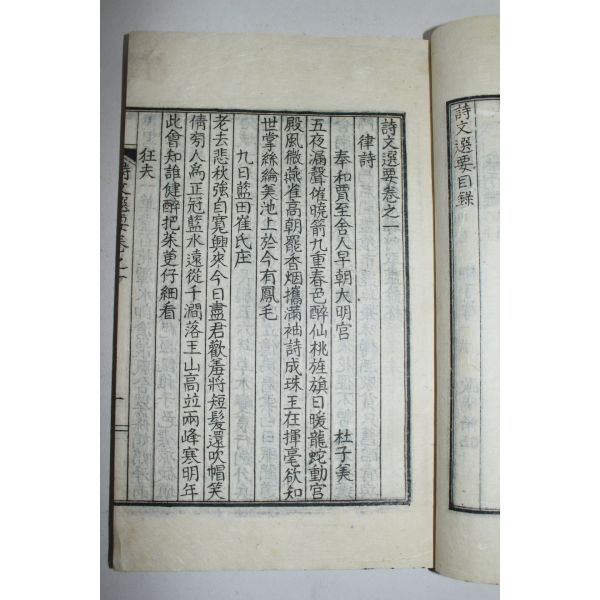 詩文選要目錄
詩文選要卷之一
律詩
奉和賈至舍人早朝大明宮 杜子美
五夜漏聲催曉箭九重春色醉仙桃旌旗日暖龍蛇動宮
殿風微燕雀高朝罷香烟攜滿袖詩成珠玉在揮毫欲知
世掌絲綸美池上於今有鳳毛
九日藍田崔氏庄
老去悲秋強自寬興來今日盡君歡羞將短髮還吹帽笑
倩旁人為正冠藍水遠從千澗落玉山高並兩峰寒明年
此會知誰健醉把茱萸仔細看
狂夫
詩文選要卷之一